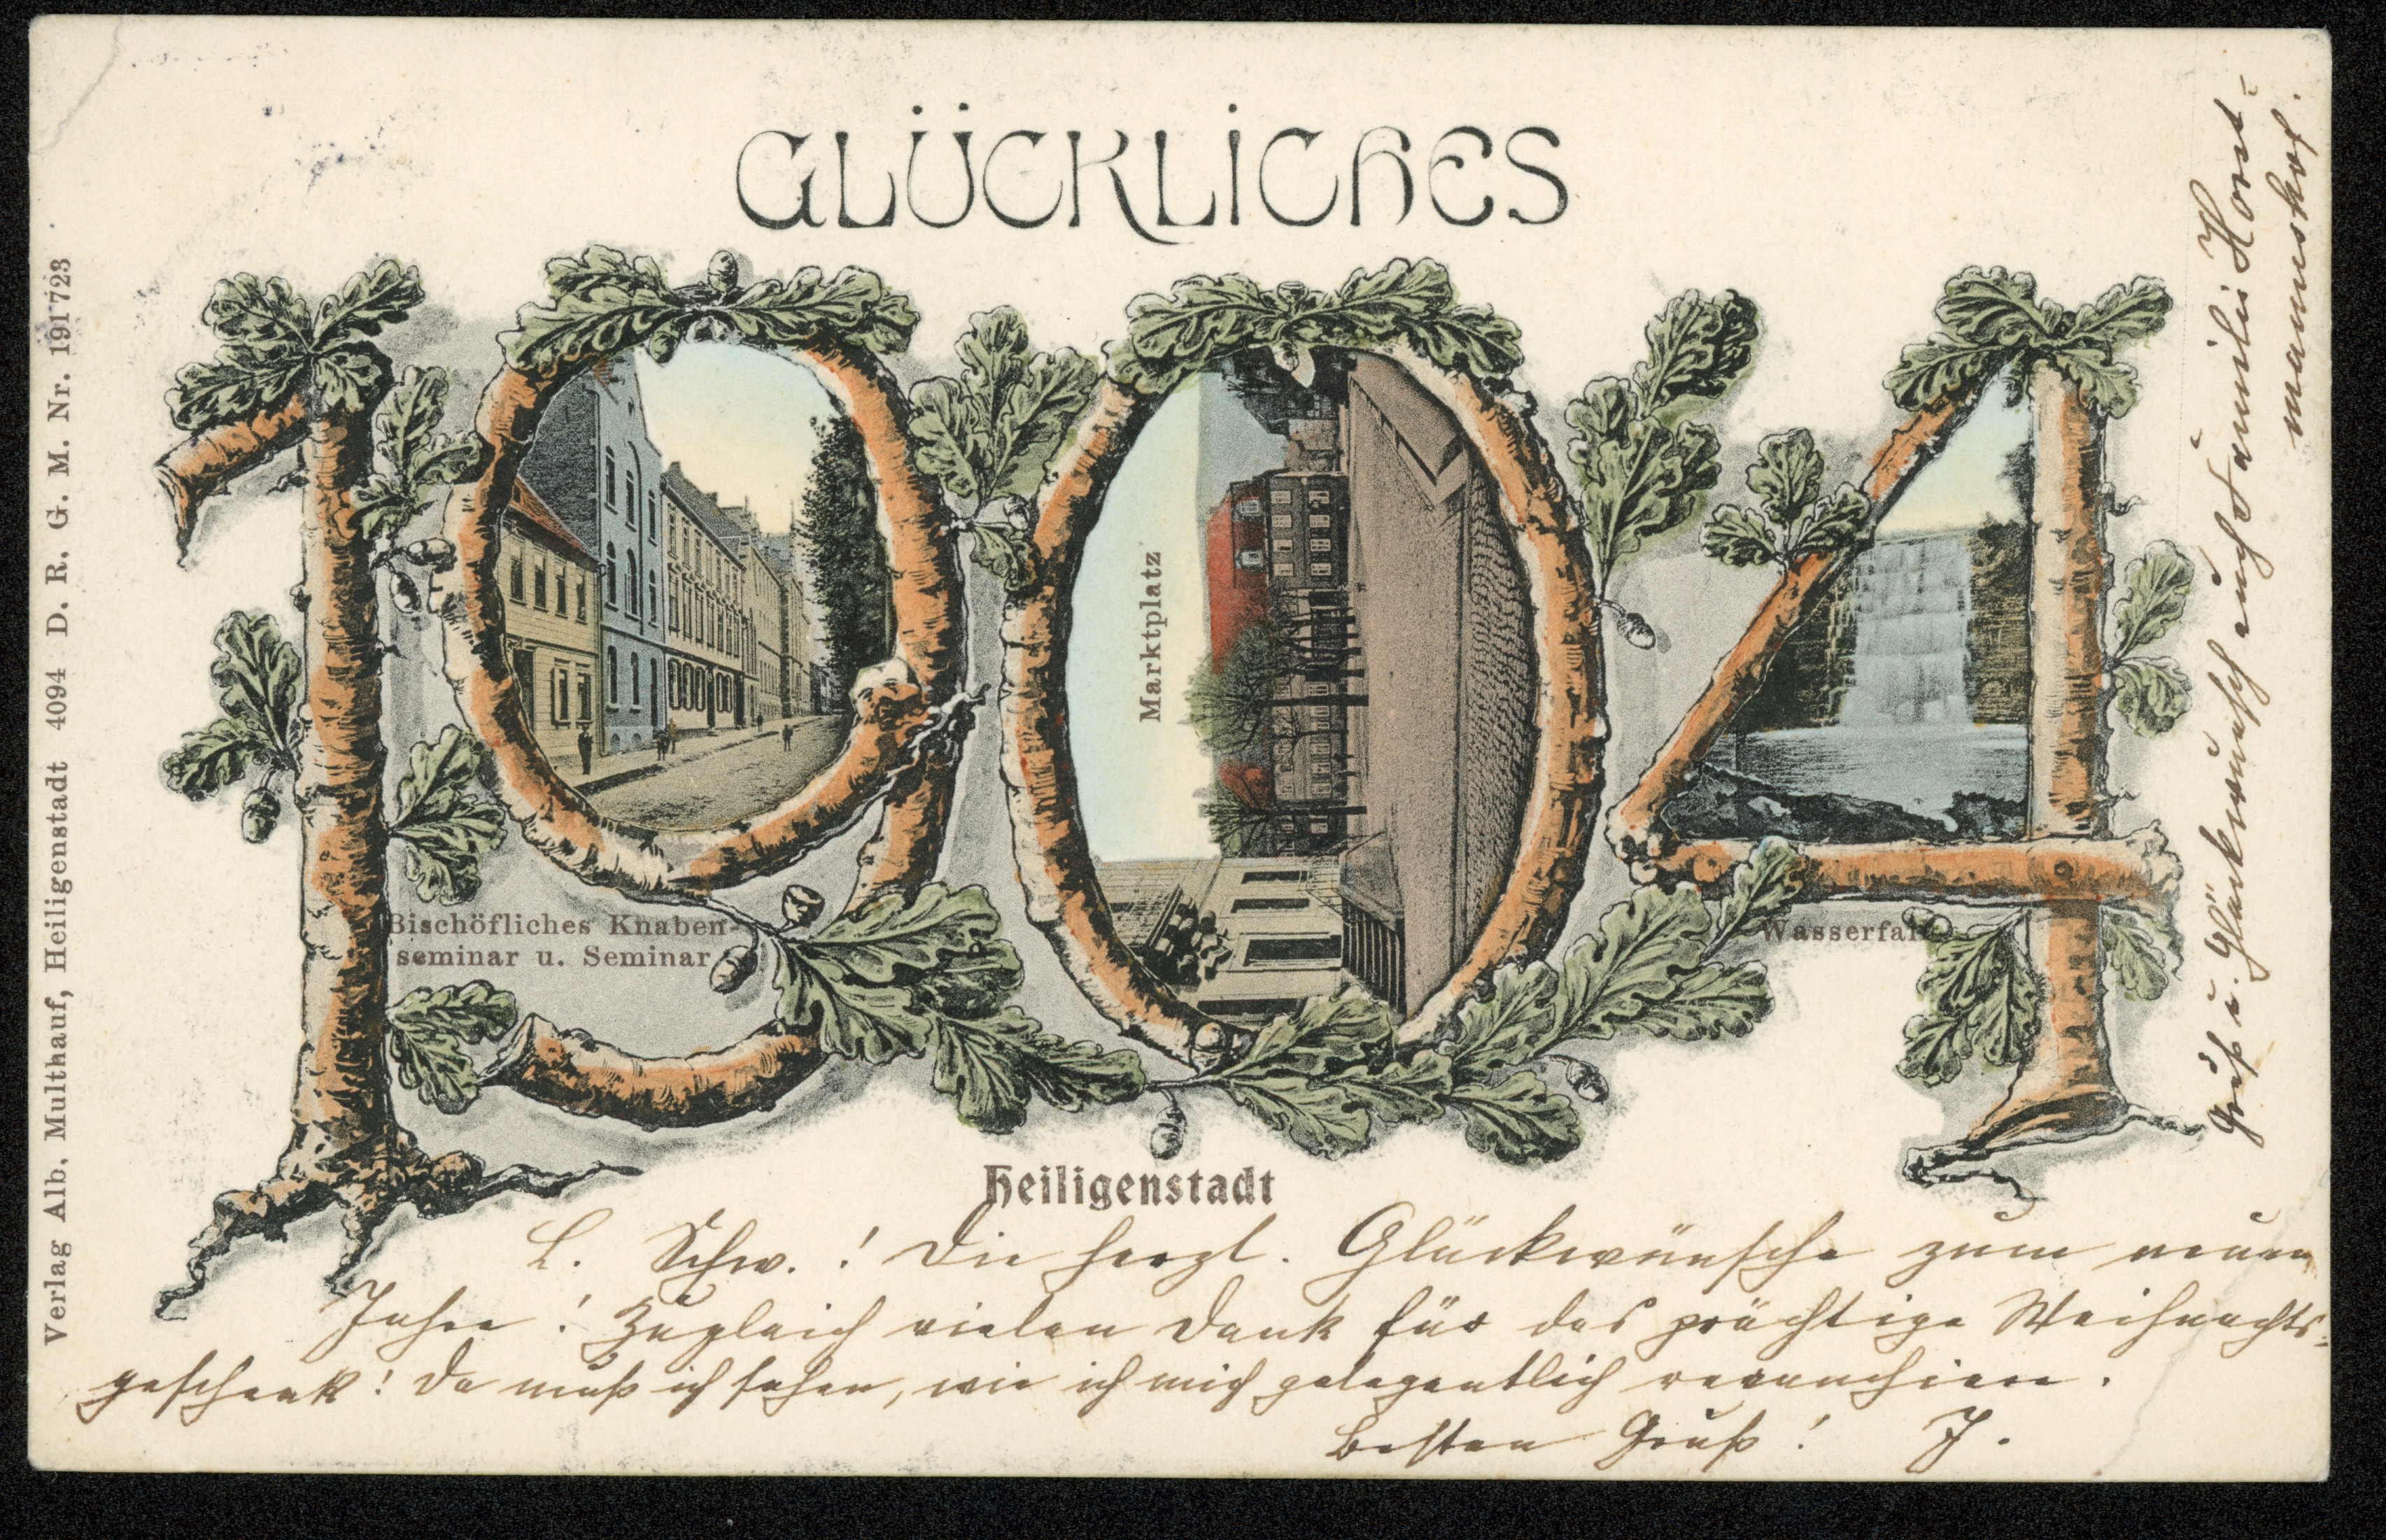 GLÜCKLICHES
1904
Bischöfliches Knaben-
seminar u. Seminar
Marktplatz
Wasserfall
Heiligenstadt
L. Schw.! Die herzl. Glückwünsche zum neuen
Jahre! Zugleich vielen Dank für das prächtige Weihnachts-
geschenk! Da muß ich sehen, wie ich mich gelegentlich revanchiere.
Besten Gruß! J.
Gruß u. Glückwunsch auch Familie
Verlag Alb. Multhauf, Heiligenstadt 4094 D. R. G. M. Nr. 191723